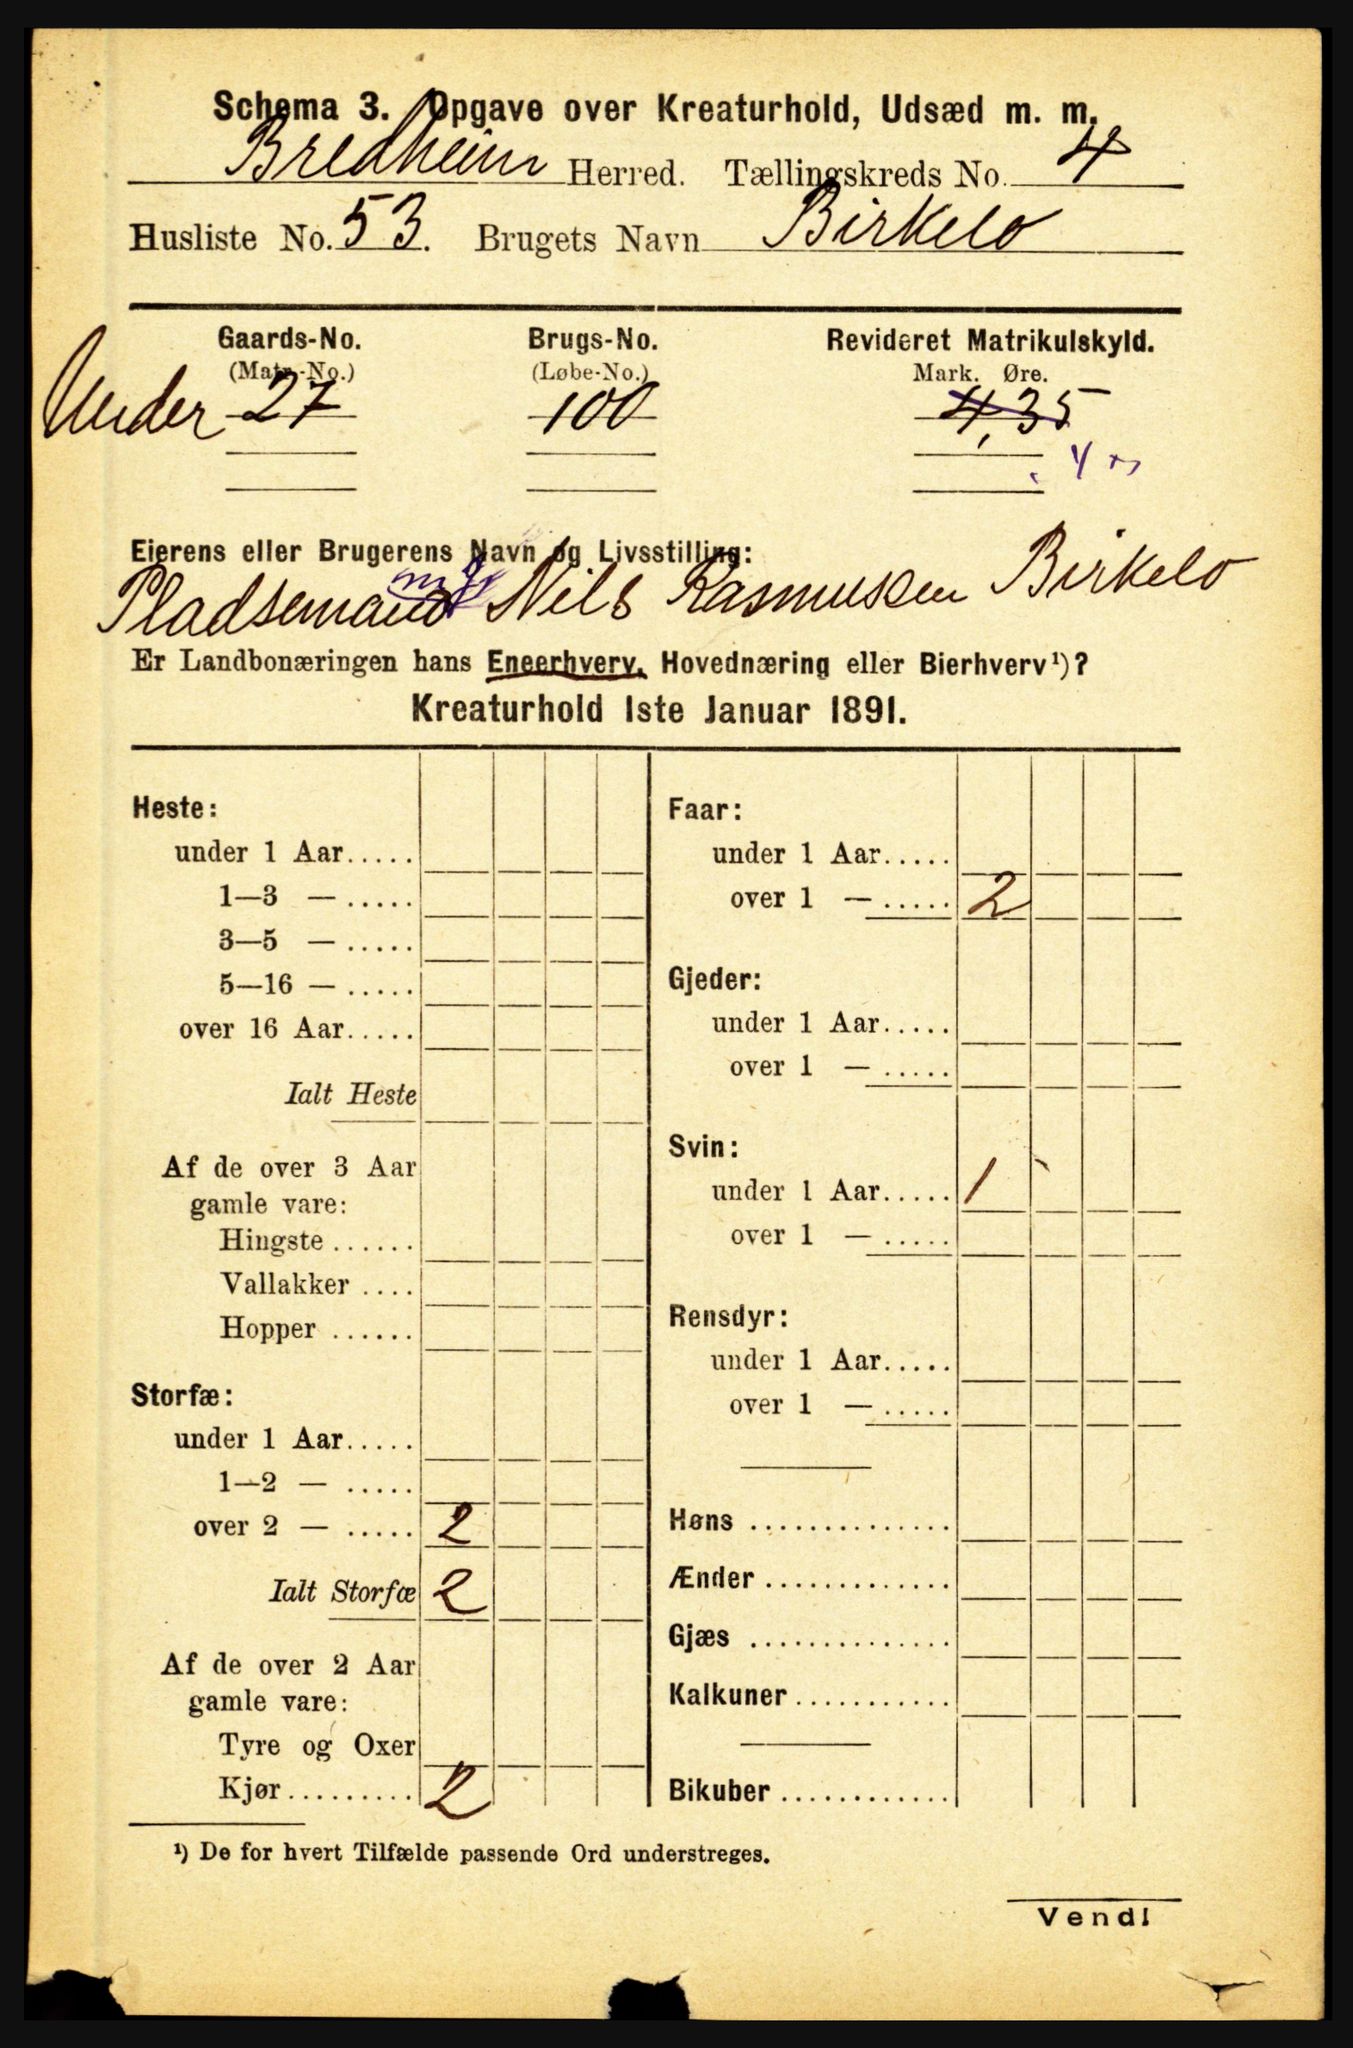 Schema 3. Opgave over Kreaturhold, Udsæd m. m.
Bredheim Herred. Tællingskreds No. 4
Husliste No. 53. Brugets Navn Birkelo
Gaards-No. Brugs-No. Revideret Matrikulskyld.
(Matr.-No.) (Løbe-No.) Mark. Øre.
Under 27 100 4,35
Eierens eller Brugerens Navn og Livsstilling:
Pladsemand Nils Rasmussen Birkelo
Er Landbonæringen hans Eneerhverv, Hovednæring eller Bierhverv¹)?
Kreaturhold 1ste Januar 1891.
Heste:
under 1 Aar.....
1—3 — .....
3—5 — .....
5—16 — .....
over 16 Aar.....
Ialt Heste
Af de over 3 Aar
gamle vare:
Hingste ......
Vallakker ....
Hopper ......
Storfæ:
under 1 Aar.....
1—2 — .....
over 2 — ..... 2
Ialt Storfæ 2
Af de over 2 Aar
gamle vare:
Tyre og Oxer
Kjør......... 2
Faar:
under 1 Aar.....
over 1 — ..... 2
Gjeder:
under 1 Aar.....
over 1 — .....
Svin:
under 1 Aar..... 1
over 1 — .....
Rensdyr:
under 1 Aar.....
over 1 — .....
Høns ..............
Ænder .............
Gjæs ..............
Kalkuner...........
Bikuber ............
¹) De for hvert Tilfælde passende Ord understreges.
Vend!